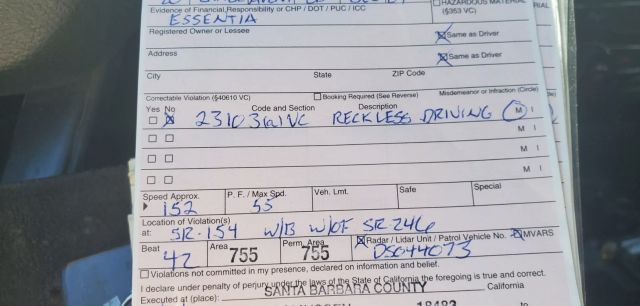 Evidence of Financial Responsibility or CHP / DOT / PUC / ICC
HAZARDOUS MATERIAL
(§353 VC)
ESSENTIA
Registered Owner or Lessee
Same as Driver
Address
Same as Driver
City State ZIP Code
Correctable Violation (§40610 VC) Booking Required (See Reverse) Misdemeanor or Infraction (Circle)
Yes No Code and Section Description
23103(a) VC RECKLESS DRIVING M I
M I
M I
M I
Speed Approx. P. F. / Max Spd. Veh. Lmt. Safe Special
152 55
Location of Violation(s)
at: SR-154 W/B W/OF SR 246
Beat Area Perm. Area Radar / Lidar Unit / Patrol Vehicle No. MVARS
42 755 755 DS044073
Violations not committed in my presence, declared on information and belief.
I declare under penalty of perjury under the laws of the State of California the foregoing is true and correct.
Executed at (place): SANTA BARBARA COUNTY California